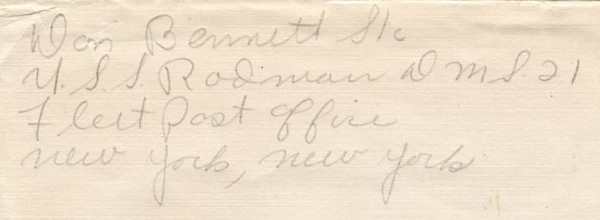 Don Bennett S1c
U.S.S. Rodman D M S. 21
Fleet Post Office
New York, New York